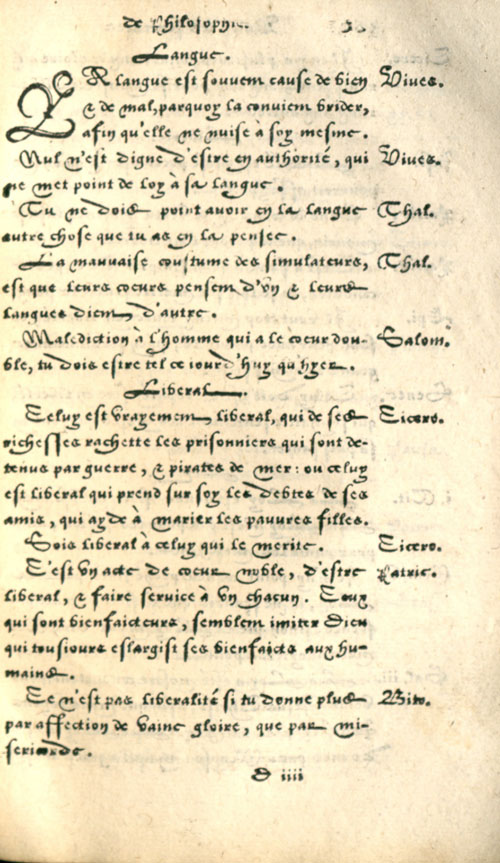 de Philosophie.
Langue.
LA langue est souvent cause de bien Vives.
& de mal, parquoy la convient brider,
afin qu'elle ne nuise à soy mesme.
Nul n'est digne d'estre en authorité, qui Vives.
ne met point de loy à sa langue.
Tu ne dois point avoir en la langue Thal.
autre chose que tu as en la pensee.
La mauvaise coustume des simulateurs, Thal.
est que leurs coeurs pensent d'un & leurs
langues dient d'autre.
Malediction à l'homme qui a le coeur dou- Salom.
ble, tu dois estre tel ce iourd'huy qu'hyer.
Liberal.
Celuy est vrayement liberal, qui de ses Cicero.
richesses rachette les prisonniers qui sont de-
tenus par guerre, & pirates de mer: ou celuy
est liberal qui prend sur soy les debtes de ses
amis, qui ayde à marier les pauvres filles.
Sois liberal à celuy qui le merite. Cicero.
C'est un acte de coeur noble, d'estre Patric.
liberal, & faire service à un chacun. Ceux
qui sont bienfaicteurs, semblent imiter Dieu
qui tousiours eslargist ses bienfaicts aux hu-
mains.
Ce n'est pas liberalité si tu donne plus Bito.
par affection de vaine gloire, que par mi-
sericorde.
D iiii